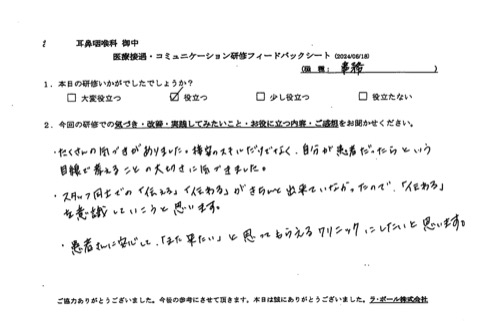 2 耳鼻咽喉科 御中
医療接遇・コミュニケーション研修フィードバックシート (2024/08/18)
(職 種: 事務 )
1．本日の研修いかがでしたでしょうか？
□ 大変役立つ ☑ 役立つ □ 少し役立つ □ 役立たない
2．今回の研修での気づき・改善・実践してみたいこと・お役に立つ内容・ご感想をお聞かせください。
・たくさんの気づきがありました。接客のスキルだけでなく、自分が患者だったらという
目線で考えることの大切さに気づきました。
・スタッフ同士での「伝える」「伝わる」がきちんと出来ていなかったので、「伝わる」
を意識していこうと思います。
・患者さんに安心して、「また来たい」と思ってもらえるクリニックにしたいと思います。
ご協力ありがとうございました。今後の参考にさせて頂きます。本日は誠にありがとうございました。ラ・ポール株式会社